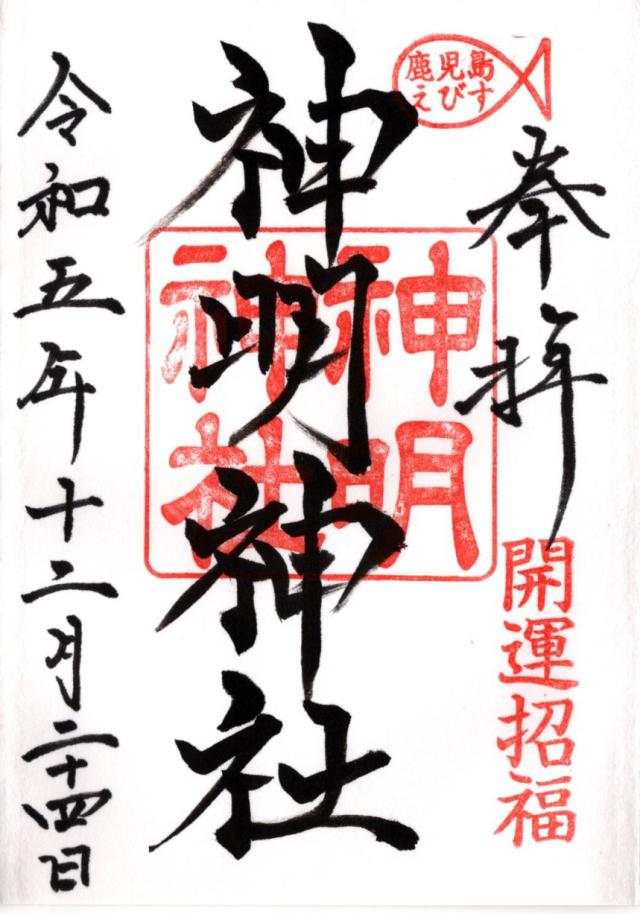 鹿児島
えびす
奉拝
開運招福
神明神社
神明
神社
令和五年十二月二十四日